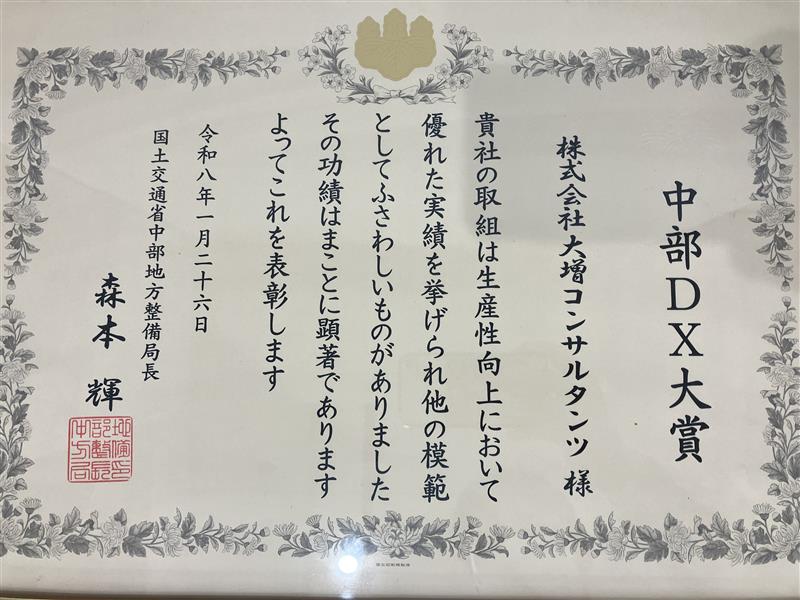 中部DX大賞
株式会社大増コンサルタンツ 様
貴社の取組は生産性向上において
優れた実績を挙げられ他の模範
としてふさわしいものがありました
その功績はまことに顕著であります
よってこれを表彰します
令和八年一月二十六日
国土交通省中部地方整備局長
森本 輝